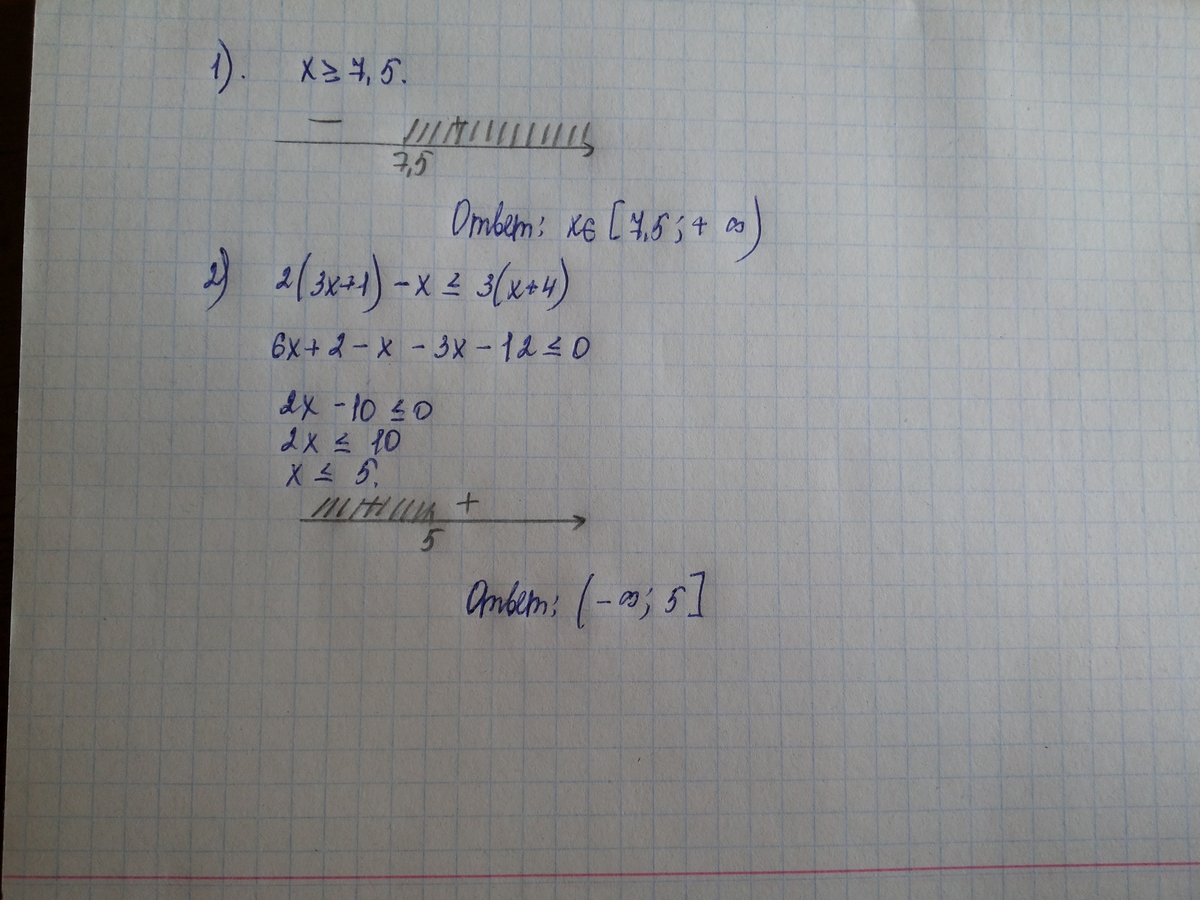 1). x ≥ 7,5.
− +
7,5
Ответ: x∈ [7,5; + ∞)
2) 2(3x+1) − x ≤ 3(x+4)
6x + 2 − x − 3x − 12 ≤ 0
2x − 10 ≤ 0
2x ≤ 10
x ≤ 5.
+
5
Ответ: (− ∞; 5]